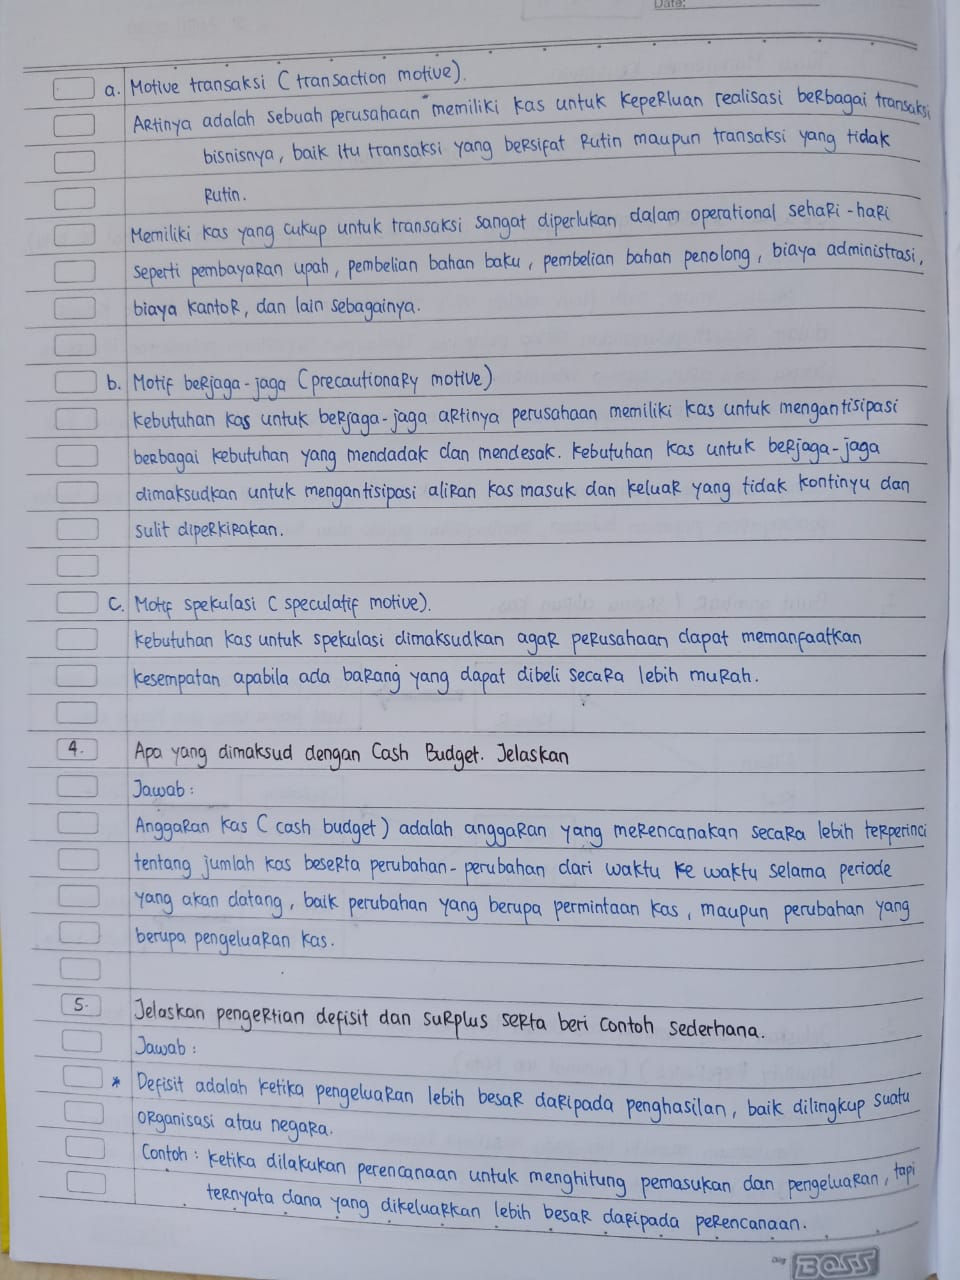 Date:
a. Motive transaksi ( transaction motive).
Artinya adalah sebuah perusahaan memiliki kas untuk keperluan realisasi berbagai transaksi
bisnisnya, baik itu transaksi yang bersifat rutin maupun transaksi yang tidak
rutin.
Memiliki kas yang cukup untuk transaksi sangat diperlukan dalam operational sehari-hari
seperti pembayaran upah, pembelian bahan baku, pembelian bahan penolong, biaya administrasi,
biaya kantor, dan lain sebagainya.
b. Motif berjaga-jaga (precautionary motive)
kebutuhan kas untuk berjaga-jaga artinya perusahaan memiliki kas untuk mengantisipasi
berbagai kebutuhan yang mendadak dan mendesak. kebutuhan kas untuk berjaga-jaga
dimaksudkan untuk mengantisipasi aliran kas masuk dan keluar yang tidak kontinyu dan
sulit diperkirakan.
c. Motif spekulasi ( speculatif motive).
kebutuhan kas untuk spekulasi dimaksudkan agar perusahaan dapat memanfaatkan
kesempatan apabila ada barang yang dapat dibeli secara lebih murah.
4. Apa yang dimaksud dengan Cash Budget. Jelaskan
Jawab :
Anggaran kas ( cash budget ) adalah anggaran yang merencanakan secara lebih terperinci
tentang jumlah kas beserta perubahan-perubahan dari waktu ke waktu selama periode
yang akan datang, baik perubahan yang berupa permintaan kas, maupun perubahan yang
berupa pengeluaran kas.
5. Jelaskan pengertian defisit dan surplus serta beri contoh sederhana.
Jawab :
* Defisit adalah ketika pengeluaran lebih besar daripada penghasilan, baik dilingkup suatu
organisasi atau negara.
Contoh : ketika dilakukan perencanaan untuk menghitung pemasukan dan pengeluaran, tapi
ternyata dana yang dikeluarkan lebih besar daripada perencanaan.
BOSS